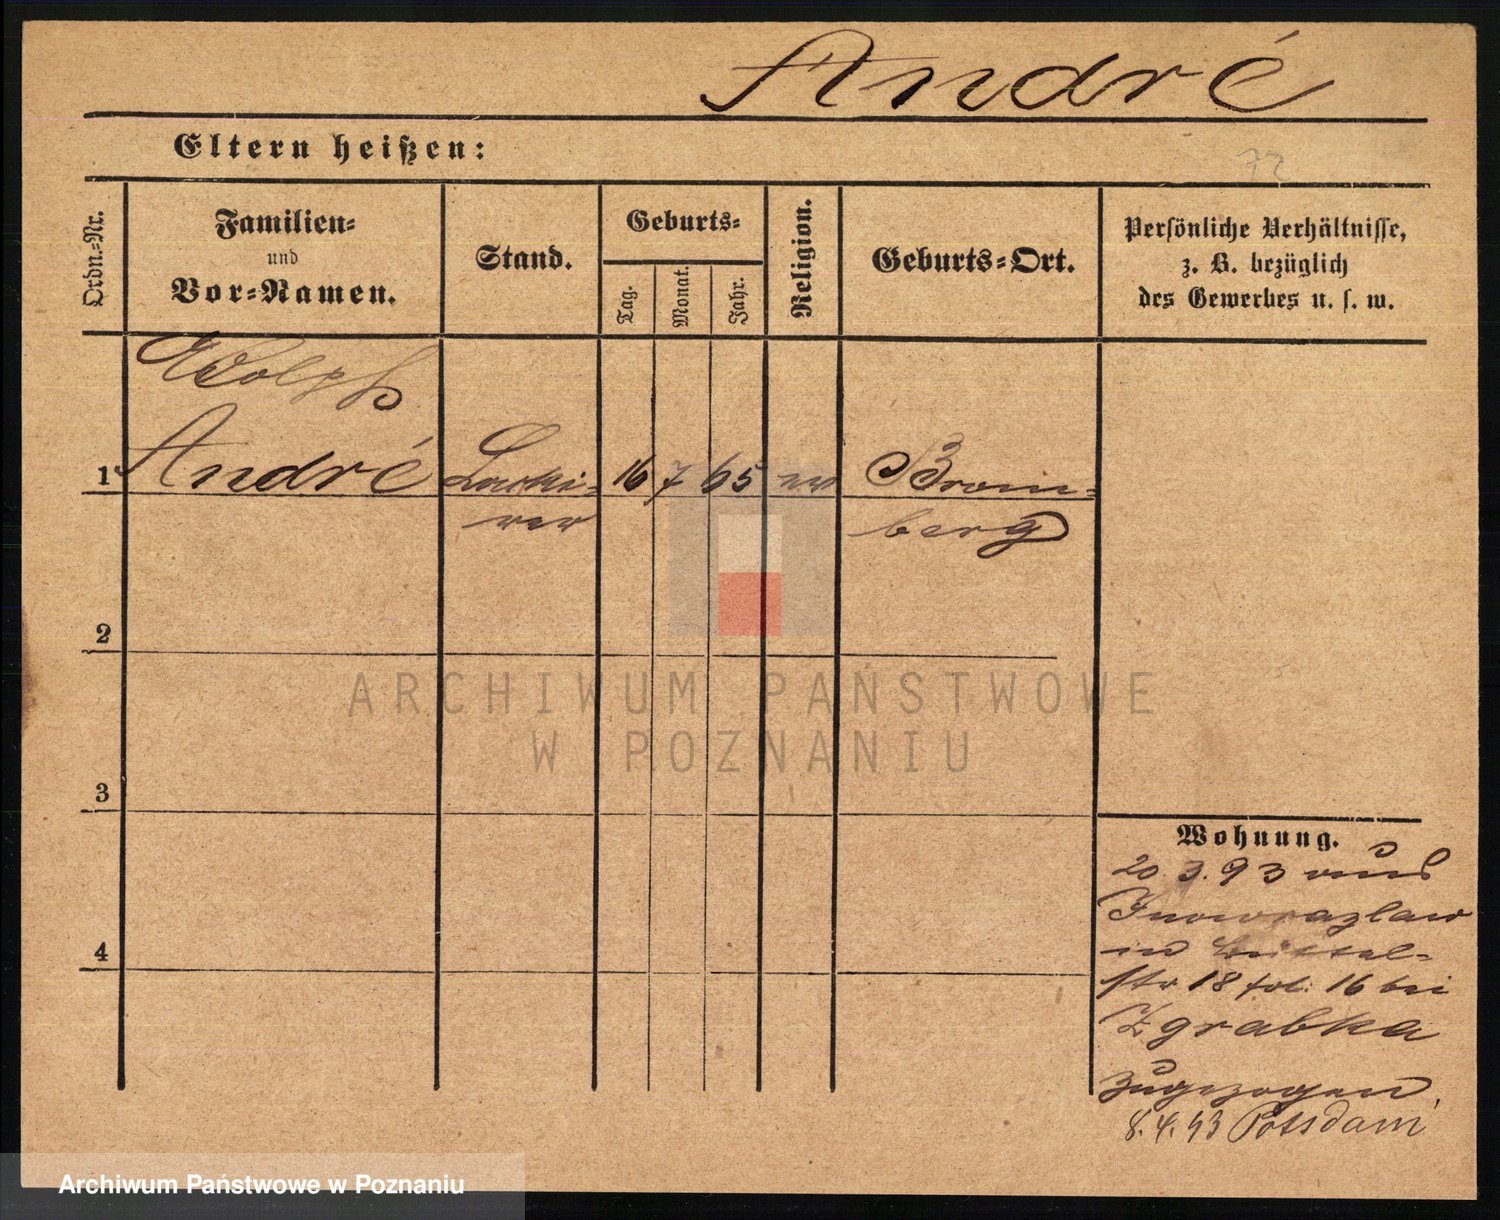 André
Eltern heißen:
72
Ordn.-Nr.
Familien-
und
Vor-Namen.
Stand.
Geburts-
Tag.
Monat.
Jahr.
Religion.
Geburts-Ort.
Persönliche Verhältnisse,
z. B. bezüglich
des Gewerbes u. s. w.
Adolph
1 André Lacki- 16 7 65 ev Brom-
rer berg
2
3
4
Wohnung.
20.3.93 aus
Inowrazlaw
in
str 18 fol: 16 bei
Zgrabka
zugezogen
8.4.93 Potsdam
ARCHIWUM PAŃSTWOWE
W POZNANIU
Archiwum Państwowe w Poznaniu